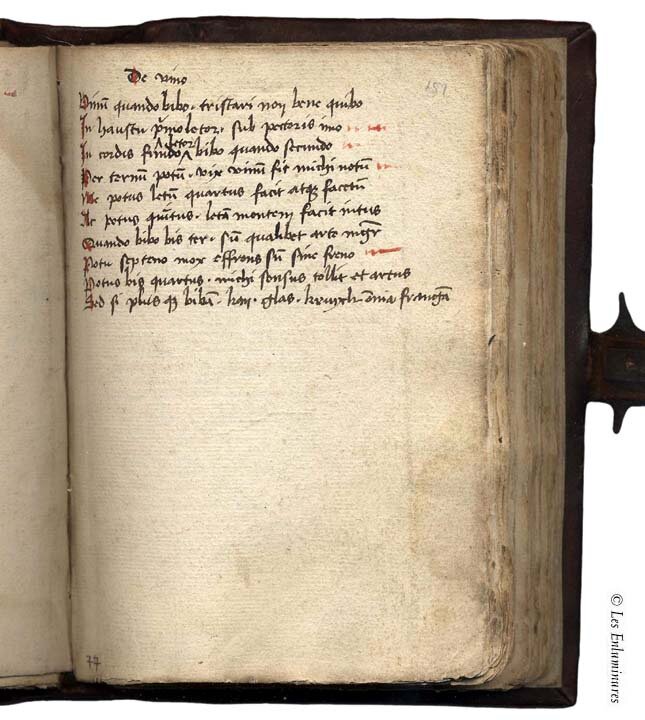 De vino
151
Vinū quando bibo · tristari non bene quibo
In haustu pͥmo letor · sub pectoris imo
In cordis fundo letor bibo quando secundo
Per ternū potū · vix vinum fit michi notū
Me potus letū quartus facit atqꝫ facetū
Ac potus quītus · letā mentem facit intus
Quando bibo bis ter · sū qualibet arte mgr̄
Potu septeno mox effrens sū sine freno
Potus bis quartus · michi sensus tollit et artus
Sed si plus qꝫ bibā · kan · glas · omīa frangā
77
© Les Enluminures